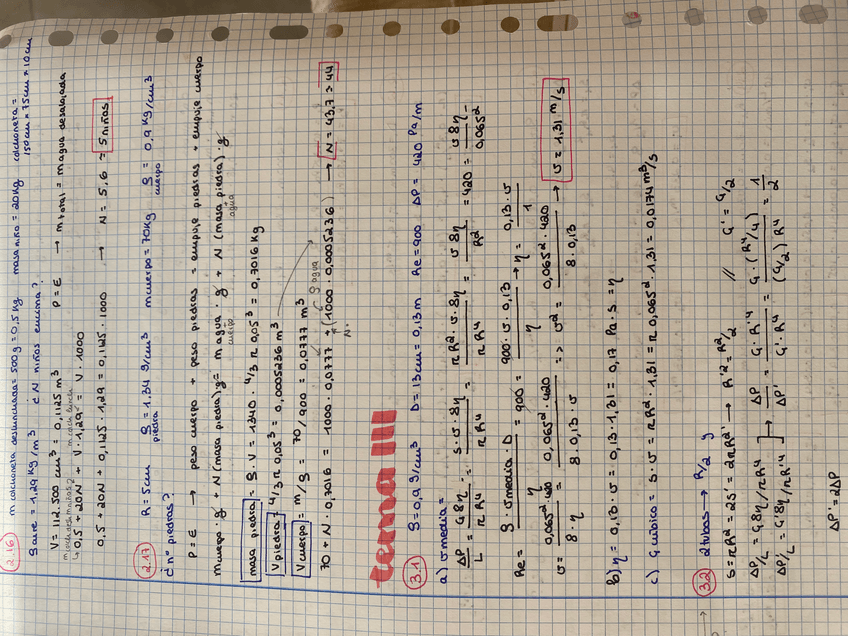 2.16 m colchoneta deshinchada = 500g = 0,5 Kg masa niño = 20Kg colchoneta =
150cm x 75cm x 10cm
ρ aire = 1,29 Kg/m³ ¿N niños encima?
V = 112.500 cm³ = 0,1125 m³ P = E → m total = m agua desalojada
0,5 + 20N + V·1,29 = V·1000
0,5 + 20N + 0,1125·1,29 = 0,1125·1000 → N = 5,6 ≈ 5 niños
2.17 R = 5cm ρ piedra = 1,34 g/cm³ m cuerpo = 70Kg ρ cuerpo = 0,9 Kg/cm³
¿nº piedras?
P = E → peso cuerpo + peso piedras = empuje piedras + empuje cuerpo
m cuerpo·g + N(masa piedra)g = m agua cuerpo·g + N(masa piedra agua)·g
masa piedra = ρ·V = 1340·4/3 π 0,05³ = 0,7016 Kg
V piedra = 4/3 π 0,05³ = 0,0005236 m³
V cuerpo = m/ρ = 70/900 = 0,0777 m³
ρ agua
70 + N·0,7016 = 1000·0,0777 + (1000·0,0005236) → N = 43,7 ≈ 44
N·
tema III
3.1 ρ = 0,9 g/cm³ D = 13cm = 0,13m Re = 900 ΔP = 420 Pa/m
a) v media =
ΔP/L = G8η/πR⁴ = S·v·8η/πR⁴ = πR²·v·8η/πR⁴ = v8η/R² = 420 = v8η/0,065²
Re = ρ·v media·D/η = 900 = 900·v·0,13/η → η = 0,13·v/1
v = 0,065²·420/8·η = 0,065²·420/8·0,13·v => v² = 0,065²·420/8·0,13 → v = 1,31 m/s
b) η = 0,13·v = 0,13·1,31 = 0,17 Pa·s = η
c) G cúbico = S·v = πR²·v = π 0,065²·1,31 = 0,0174 m³/s
3.2 2 tubos → R/2 y
S = πR² = 2S' = 2πR'² → R'² = R²/2 // G' = G/2
ΔP/L = G8η/πR⁴
ΔP'/L = G'8η/πR'⁴ → ΔP/ΔP' = G·R'⁴/G'·R⁴ = G·(R⁴/4)/(G/2)R⁴ = 1/2
ΔP' = 2ΔP